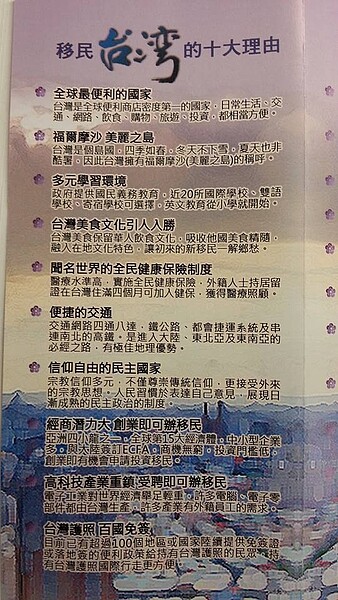 移民台灣的十大理由
全球最便利的國家
台灣是全球便利商店密度第一的國家，日常生活、交
通、網路、飲食、購物、旅遊、投資，都相當方便。
福爾摩沙 美麗之島
台灣是個島國，四季如春，冬天不下雪，夏天也非
酷署，因此台灣擁有福爾摩沙(美麗之島)的稱呼。
多元學習環境
政府提供國民義務教育，近20所國際學校、雙語
學校、寄宿學校可選擇，英文教育從小學就開始。
台灣美食文化引人入勝
台灣美食保留華人飲食文化，吸收他國美食精隨，
融入在地文化特色，讓初來的新移民一解鄉愁。
聞名世界的全民健康保險制度
醫療水準高，實施全民健康保險，外籍人士持居留
證在台灣住滿四個月可加入健保，獲得醫療照顧。
便捷的交通
交通網路四通八達，鐵公路、都會捷運系統及串
連南北的高鐵。是進入大陸、東北亞及東南亞的
必經之路，有極佳地理優勢。
信仰自由的民主國家
宗教信仰多元，不僅尊崇傳統信仰，更接受外來
的宗教思想。人民習慣於表達自己意見，展現日
漸成熟的民主政治的制度。
經商潛力大 創業即可辦移民
亞洲四小龍之一，全球第15大經濟體，中小型企業
多，與大陸簽訂ECFA，商機無窮，投資門檻低，
創業即有機會申請投資移民。
高科技產業重鎮 受聘即可辦移民
電子工業對世界經濟舉足輕重，許多電腦、電子零
部件都由台灣生產，許多產業有外籍員工的需求。
台灣護照 百國免簽
目前已有超過100個地區或國家陸續提供免簽證
或落地簽的便利政策給持有台灣護照的民眾，持
有台灣護照國際行走更方便。